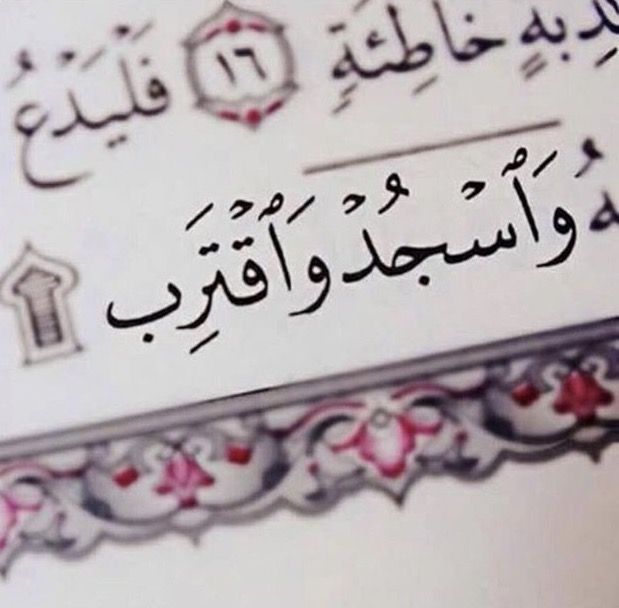 خَاطِئَةٍ ١٦ فَلْيَدْعُ
وَٱسْجُدْ وَٱقْتَرِب